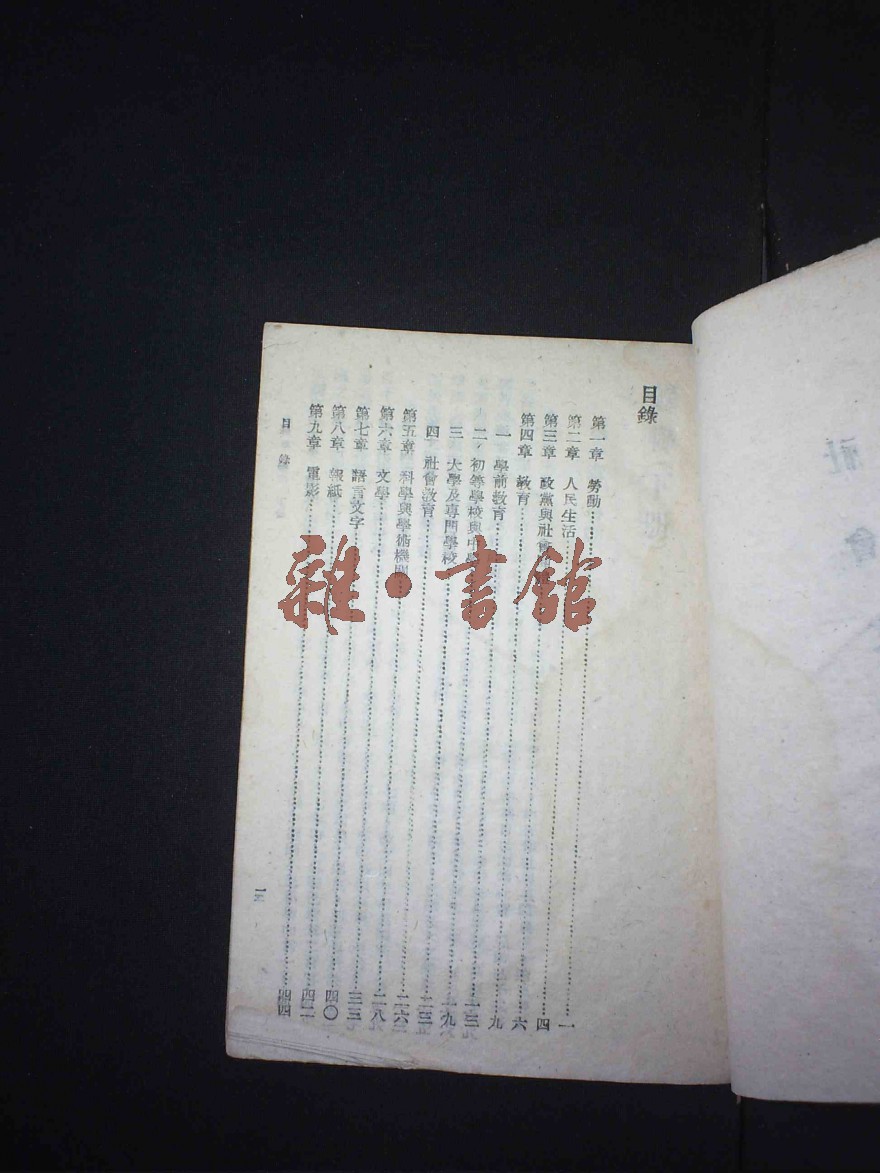 社會
目錄
第一章 勞動……一
第二章 人民生活……四
第三章 政黨與社會……六
第四章 教育……九
一 學前教育……一三
二 初等學校與中學……一九
三 大學及專門學校……二三
四 社會教育……二六
第五章 科學與學術機關……二八
第六章 文學……三三
第七章 語言文字……四〇
第八章 報紙……四二
第九章 電影……四四
目錄
一
雜·書館